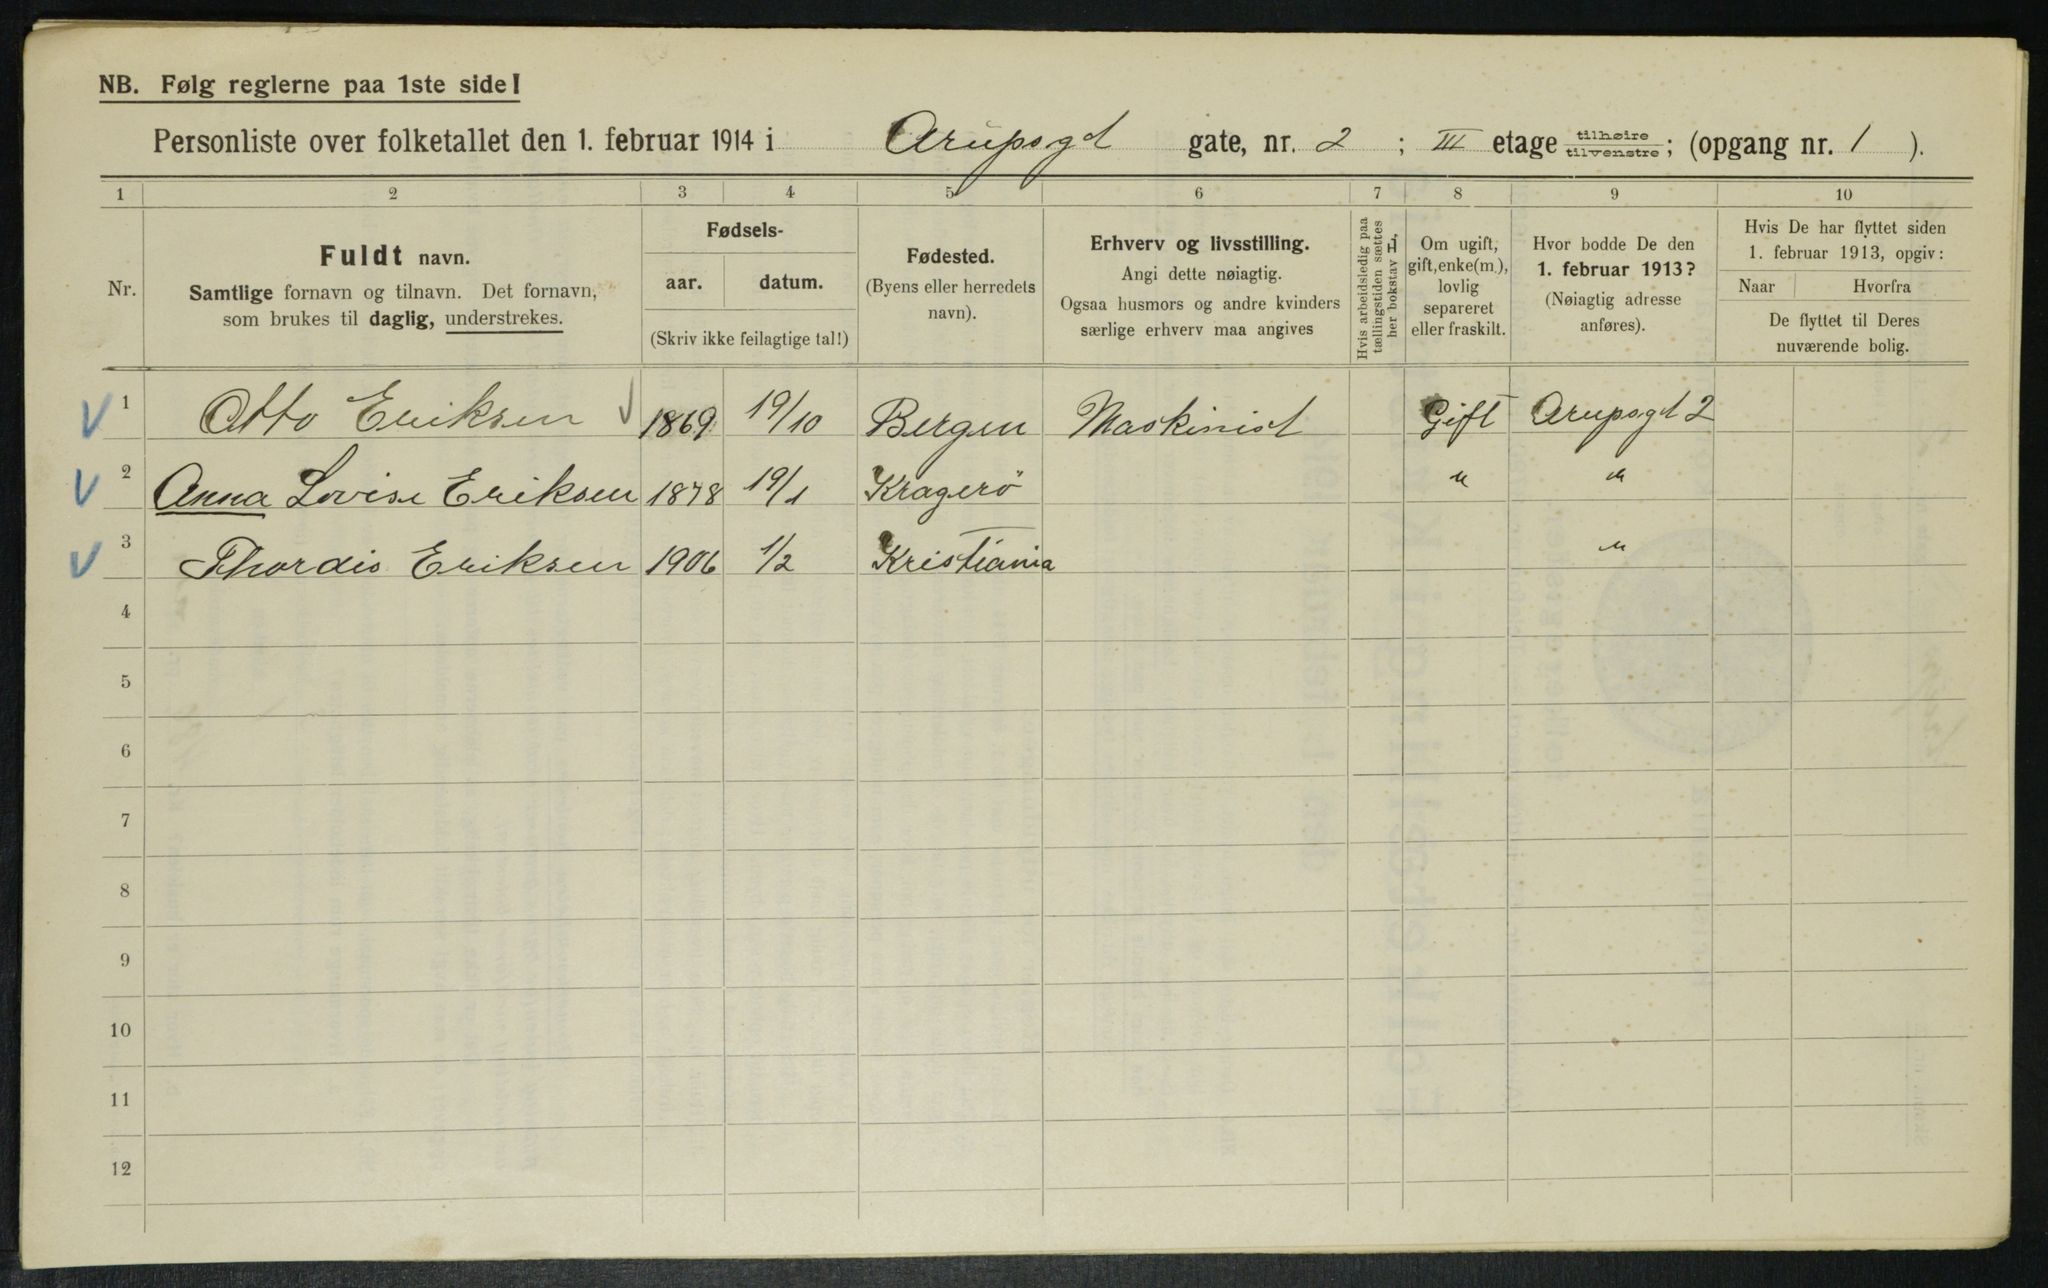 NB. Følg reglerne paa 1ste side!
Personliste over folketallet den 1. februar 1914 i Arupsgt gate, nr. 2 ; III etage tilhøire/tilvenstre; (opgang nr. 1 ).
1 2 3 4 5 6 7 8 9 10
Nr.
Fuldt navn.
Samtlige fornavn og tilnavn. Det fornavn,
som brukes til daglig, understrekes.
Fødsels-
aar. datum.
(Skriv ikke feilagtige tal!)
Fødested.
(Byens eller herredets
navn).
Erhverv og livsstilling.
Angi dette nøiagtig.
Ogsaa husmors og andre kvinders
særlige erhverv maa angives
Hvis arbeidsledig paa
tællingstiden sættes
her bokstav L.
Om ugift,
gift, enke(m.),
lovlig
separeret
eller fraskilt.
Hvor bodde De den
1. februar 1913?
(Nøiagtig adresse
anføres).
Hvis De har flyttet siden
1. februar 1913, opgiv:
Naar Hvorfra
De flyttet til Deres
nuværende bolig.
1 Otto Eriksen 1869 19/10 Bergen Maskinist Gift Arupsgt 2
2 Anna Lovise Eriksen 1878 19/1 Kragerö " "
3 Thordis Eriksen 1906 1/2 Kristiania "
4
5
6
7
8
9
10
11
12